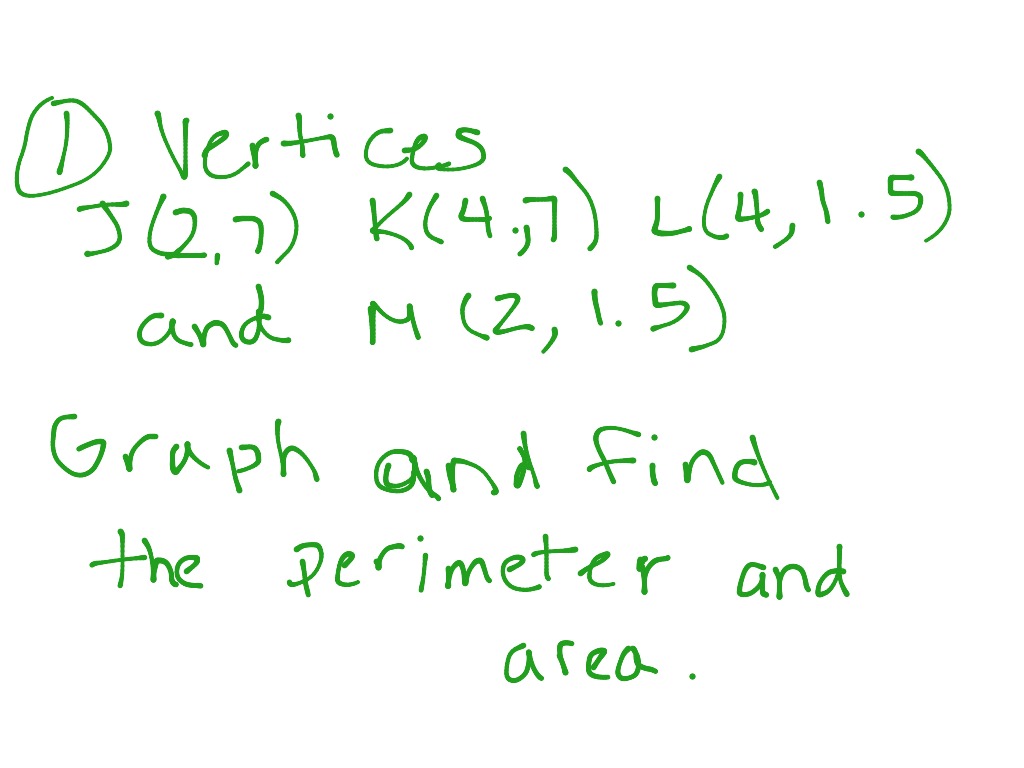 ① Vertices
J(2,7) K(4,7) L(4,1.5)
and M(2,1.5)
Graph and find
the perimeter and
area.